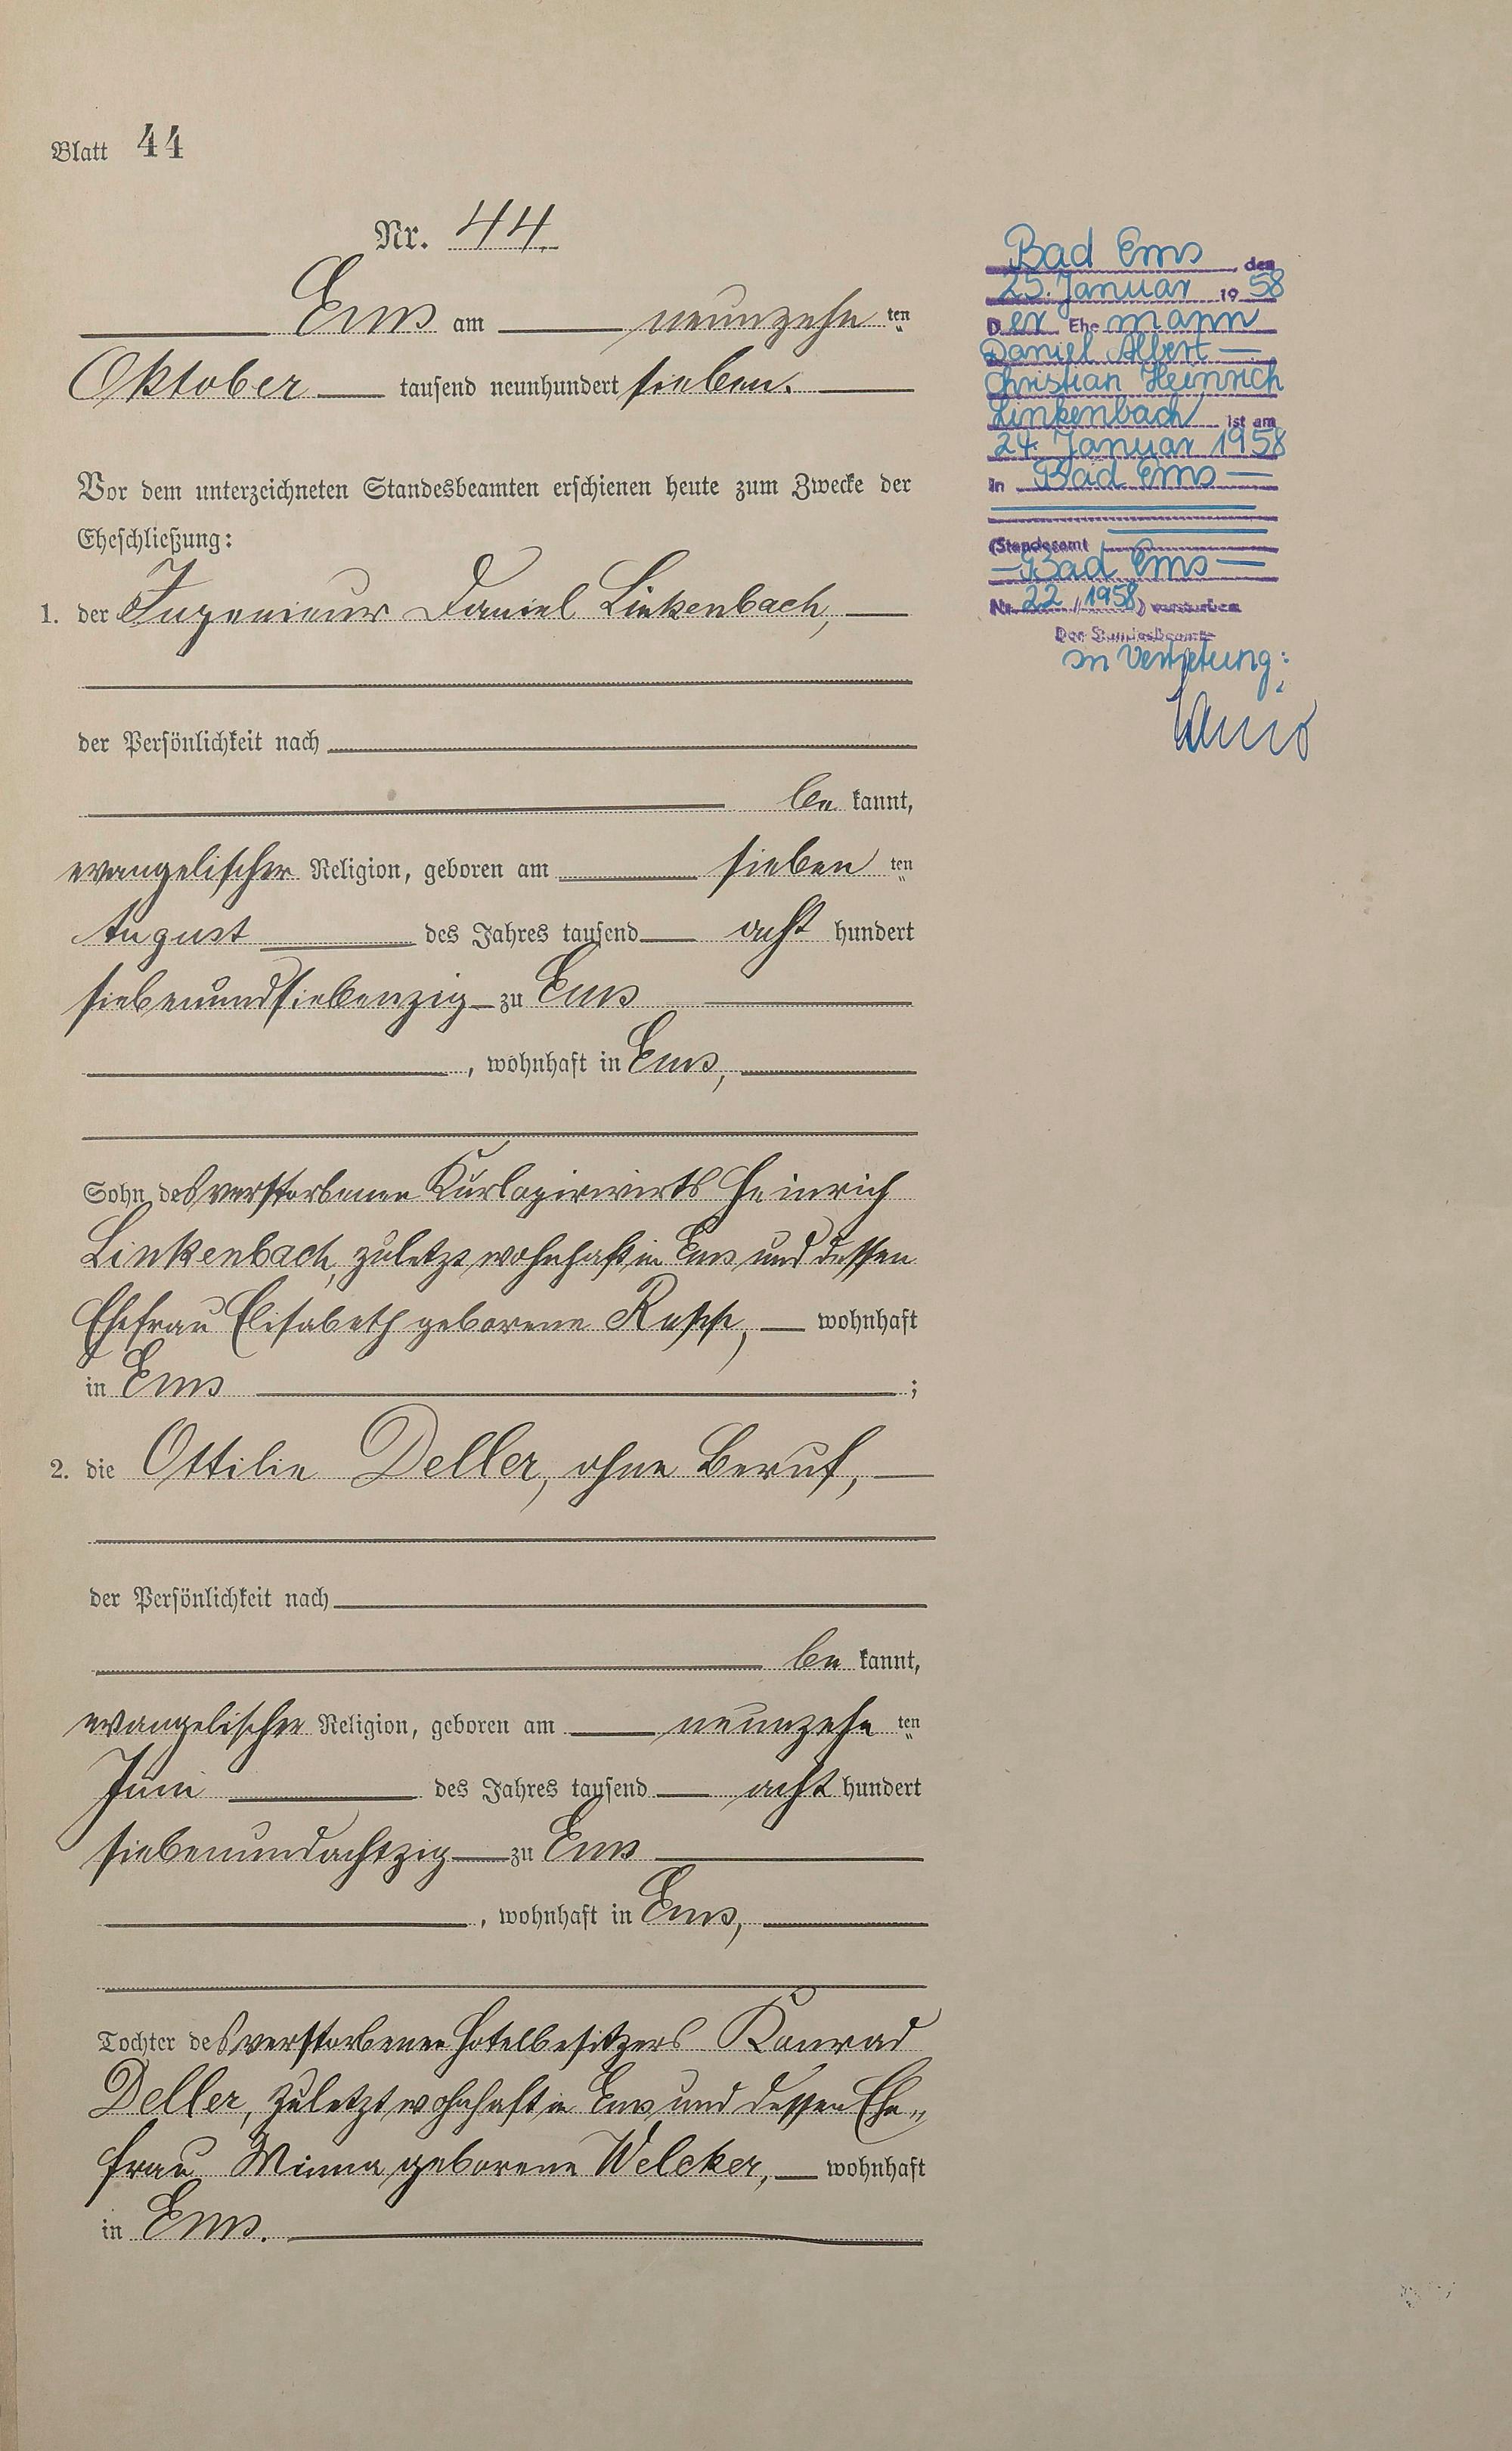 Blatt 44
Nr. 44.
Ems am neunzehnten
Oktober tausend neunhundert sieben.
Vor dem unterzeichneten Standesbeamten erschienen heute zum Zwecke der
Eheschließung:
1. der Ingenieur Daniel Linkenbach,
der Persönlichkeit nach
bekannt,
evangelischer Religion, geboren am siebenten
August des Jahres tausend acht hundert
siebenundsiebenzig zu Ems
, wohnhaft in Ems,
Sohn des verstorbenen Kurlogirwirts Heinrich
Linkenbach, zuletzt wohnhaft in Ems und dessen
Ehefrau Elisabeth geborene Rupp, wohnhaft
in Ems ;
2. die Ottilie Deller, ohne Beruf,
der Persönlichkeit nach
bekannt,
evangelischer Religion, geboren am neunzehnten
Juni des Jahres tausend acht hundert
siebenundachtzig zu Ems
, wohnhaft in Ems,
Tochter des verstorbenen Hotelbesitzers Konrad
Deller, zuletzt wohnhaft in Ems und dessen Ehe„
frau Minna geborene Welcker, wohnhaft
in Ems.
Bad Ems, den
25. Januar 1958
Der Ehemann
Daniel Albert
Christian Heinrich
Linkenbach ist am
24. Januar 1958
in Bad Ems
(Standesamt
Bad Ems
Nr. 22/1958) verstorben
Der Standesbeamte
In Vertretung: